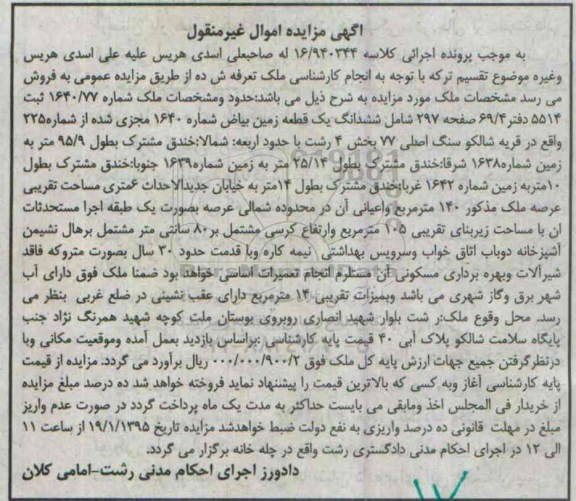 آگهی مزایده اموال غیرمنقول
به موجب پرونده اجرائی کلاسه ۱۶/۹۴۰۳۴۴ له صاحبعلی اسدی هریس علیه علی اسدی هریس
وغیره موضوع تقسیم ترکه با توجه به انجام کارشناسی ملک تعرفه ش ده از طریق مزایده عمومی به فروش
می رسد مشخصات ملک مورد مزایده به شرح ذیل می باشد:حدود ومشخصات ملک شماره ۱۶۴۰/۷۷ ثبت
۵۵۱۴ دفتر۶۹/۴ صفحه ۲۹۷ شامل ششدانگ یک قطعه زمین بیاض شماره ۱۶۴۰ مجزی شده از شماره۲۲۵
واقع در قریه شالکو سنگ اصلی ۷۷ بخش ۴ رشت با حدود اربعه: شمالا:خندق مشترک بطول ۹۵/۹ متر به
زمین شماره۱۶۳۸ شرقا:خندق مشترک بطول ۲۵/۱۴ متر به زمین شماره۱۶۳۹ جنوبا:خندق مشترک بطول
۱۰متربه زمین شماره ۱۶۴۲ غربا:خندق مشترک بطول ۱۴متر به خیابان جدیدالاحداث ۶متری مساحت تقریبی
عرصه ملک مذکور ۱۴۰ مترمربع واعیانی آن در محدوده شمالی عرصه بصورت یک طبقه اجرا مستحدثات
ان با مساحت زیربنای تقریبی ۱۰۵ مترمربع وارتفاع کرسی مشتمل بر۸۰ سانتی متر مشتمل برهال نشیمن
آشپزخانه دوباب اتاق خواب وسرویس بهداشتی نیمه کاره وبا قدمت حدود ۳۰ سال بصورت متروکه فاقد
شیرآلات وبهره برداری مسکونی آن مستلزم انجام تعمیرات اساسی خواهد بود ضمنا ملک فوق دارای آب
شهر برق وگاز شهری می باشد وبمیزات تقریبی ۱۴ مترمربع دارای عقب نشینی در ضلع غربی بنظر می
رسد. محل وقوع ملک:ر شت بلوار شهید انصاری روبروی بوستان ملت کوچه شهید همرنگ نژاد جنب
پایگاه سلامت شالکو پلاک آبی ۴۰ قیمت پایه کارشناسی :براساس بازدید بعمل آمده وموقعیت مکانی وبا
درنظرگرفتن جمیع جهات ارزش پایه کل ملک فوق ۰۰۰/۰۰۰/۹۰۰/۲ ریال برآورد می گردد. مزایده از قیمت
پایه کارشناسی آغاز وبه کسی که بالاترین قیمت را پیشنهاد نماید فروخته خواهد شد ده درصد مبلغ مزایده
از خریدار فی المجلس اخذ ومابقی می بایست حداکثر به مدت یک ماه پرداخت گردد در صورت عدم واریز
مبلغ در مهلت قانونی ده درصد واریزی به نفع دولت ضبط خواهدشد مزایده تاریخ ۱۹/۱/۱۳۹۵ از ساعت ۱۱
الی ۱۲ در اجرای احکام مدنی دادگستری رشت واقع در چله خانه برگزار می گردد.
دادورز اجرای احکام مدنی رشت-امامی کلان